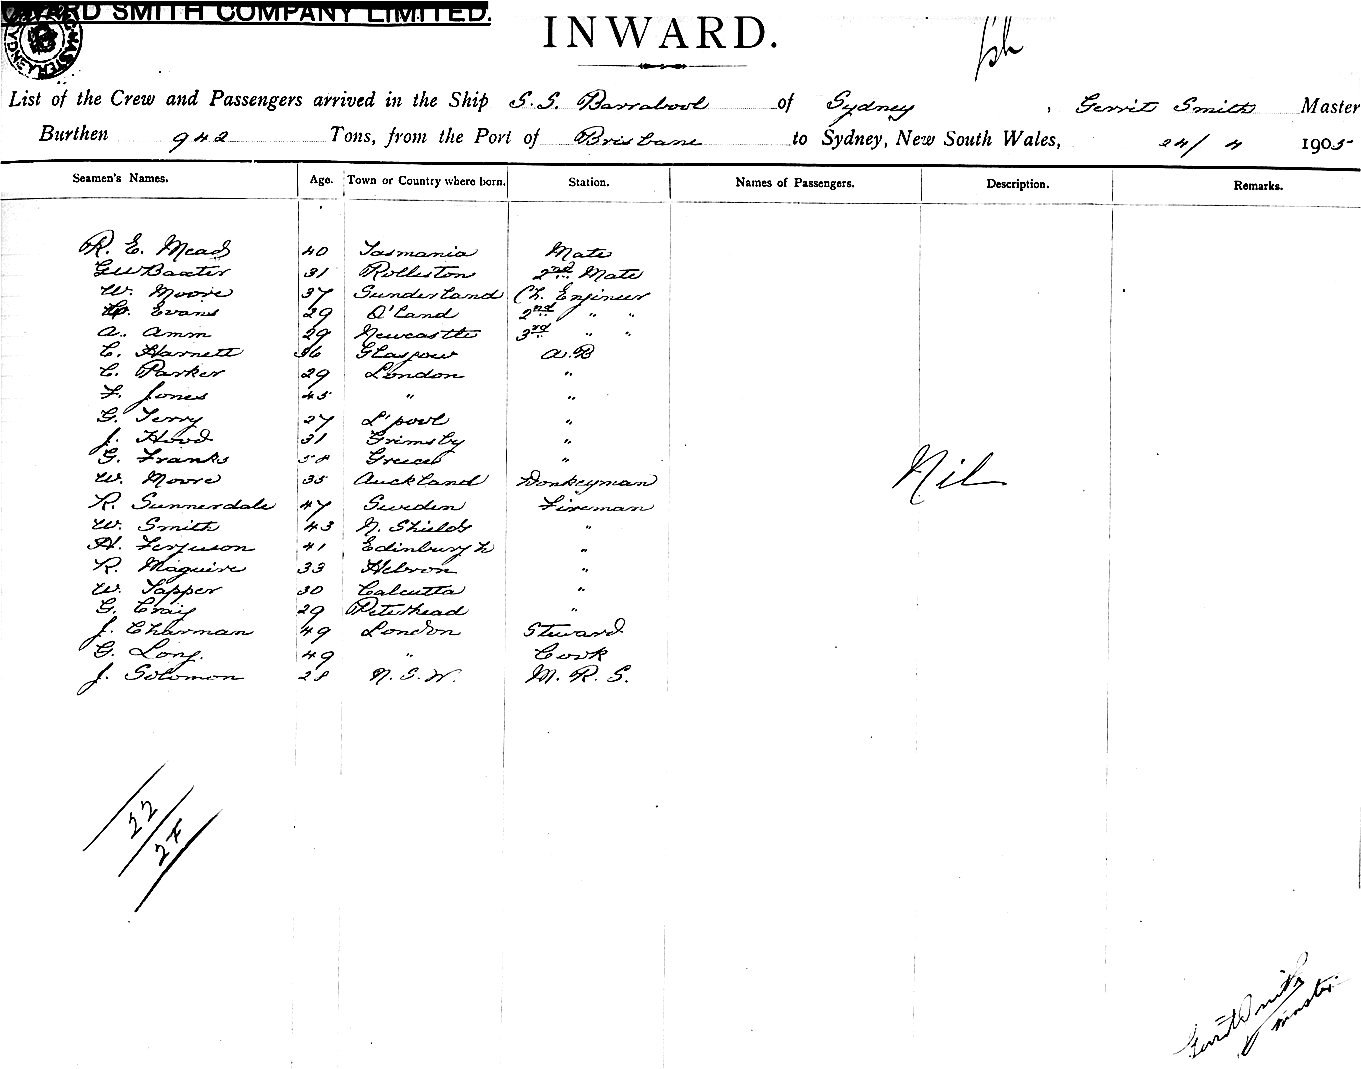 SMITH COMPANY LIMITED.
INWARD.
List of the Crew and Passengers arrived in the Ship S.S. Barrabool of Sydney, Gerrit Smith Master
Burthen 942 Tons, from the Port of Brisbane to Sydney, New South Wales, 24/4 1905
Seamen's Names. Age. Town or Country where born. Station. Names of Passengers. Description. Remarks.
R. E. Mead 40 Tasmania Mate
GW Baxter 31 Rolleston 2nd Mate
W. Moore 37 Sunderland Ch. Engineer
Evans 29 Q'land 2nd " "
A. Amm 29 Newcastle 3rd " "
C. Harnett 36 Glasgow A.B
C. Parker 29 London "
F. Jones 45 " "
G. Terry 27 L'pool "
J. Hood 31 Grimsby "
G. Franks 58 Greece "
W. Moore 35 Auckland Donkeyman
Nil
R. Sunnerdale 47 Sweden Fireman
W. Smith 43 N. Shields "
H. Ferguson 41 Edinburgh "
R. Maguire 33 Hebron "
W. Tapper 30 Calcutta "
G. Craig 29 Peterhead "
J. Charman 49 London Steward
G. Long. 49 " Cook
J. Solomon 28 N. S. W. M. R. S.
22
Gerrit Smith
Master